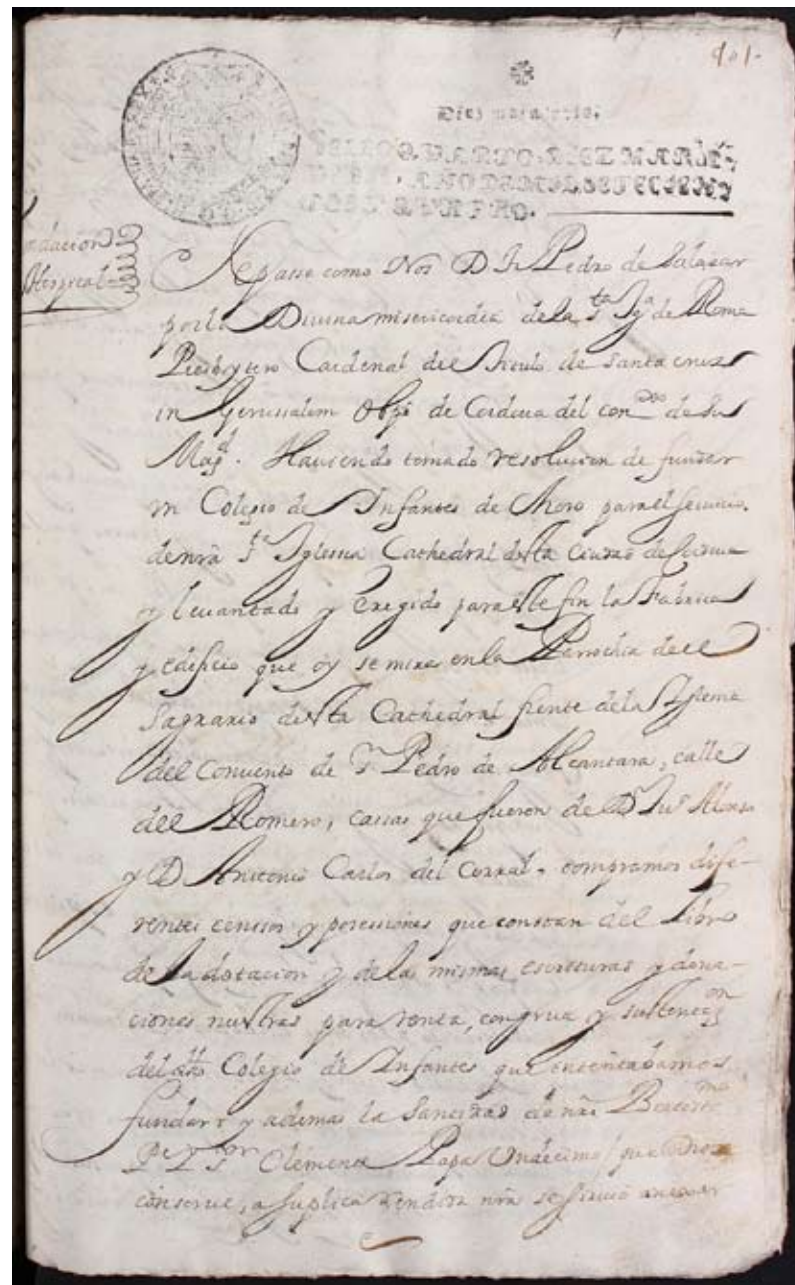 901.
Diez maravedis.
SELLO QVARTO, DIEZ MARAVE
DIS, AÑO DE MIL Y SETECIEN
TOS Y QVATRO.
ndacion
Hospital
Sepasse como Nos D Fr Pedro de Salazar
por la Divina misericordia de la Sta Yga de Roma
Presbytero Cardenal del titulo de Santa cruz
in Gerussalem Obpo de Cordoua del consso de Su
Magd. Hauiendo tomado resolucion de fundar
vn Colegio de Infantes de Choro para el seruicio
de nra Sta Iglesia Cathedral desta ciudad de Cordoua
y leuantado y Exegido para este fin la Fabrica
y edificio que oy se mira en la Parrochia de el
Sagrario desta Cathedral frente de la Yglesia
del Conuento de Sn Pedro de Alcantara, calle
del Romero, cassas que fueron de Dn Jun Alonso
y D Antonio Carlos del Corral, compramos dife-
rentes censos y possessiones que constan del Libro
de la dotacion y de las mismas escrituras y dona-
ciones nuestras para renta, congrua y sustentaon
del dho Colegio de Infantes que intentabamos
fundar y ademas la Santidad de nro Beatismo
Pe Y Sor Clemente Papa Undecimo que Dios
conserue, a suplica rendida nra se siruio anexar